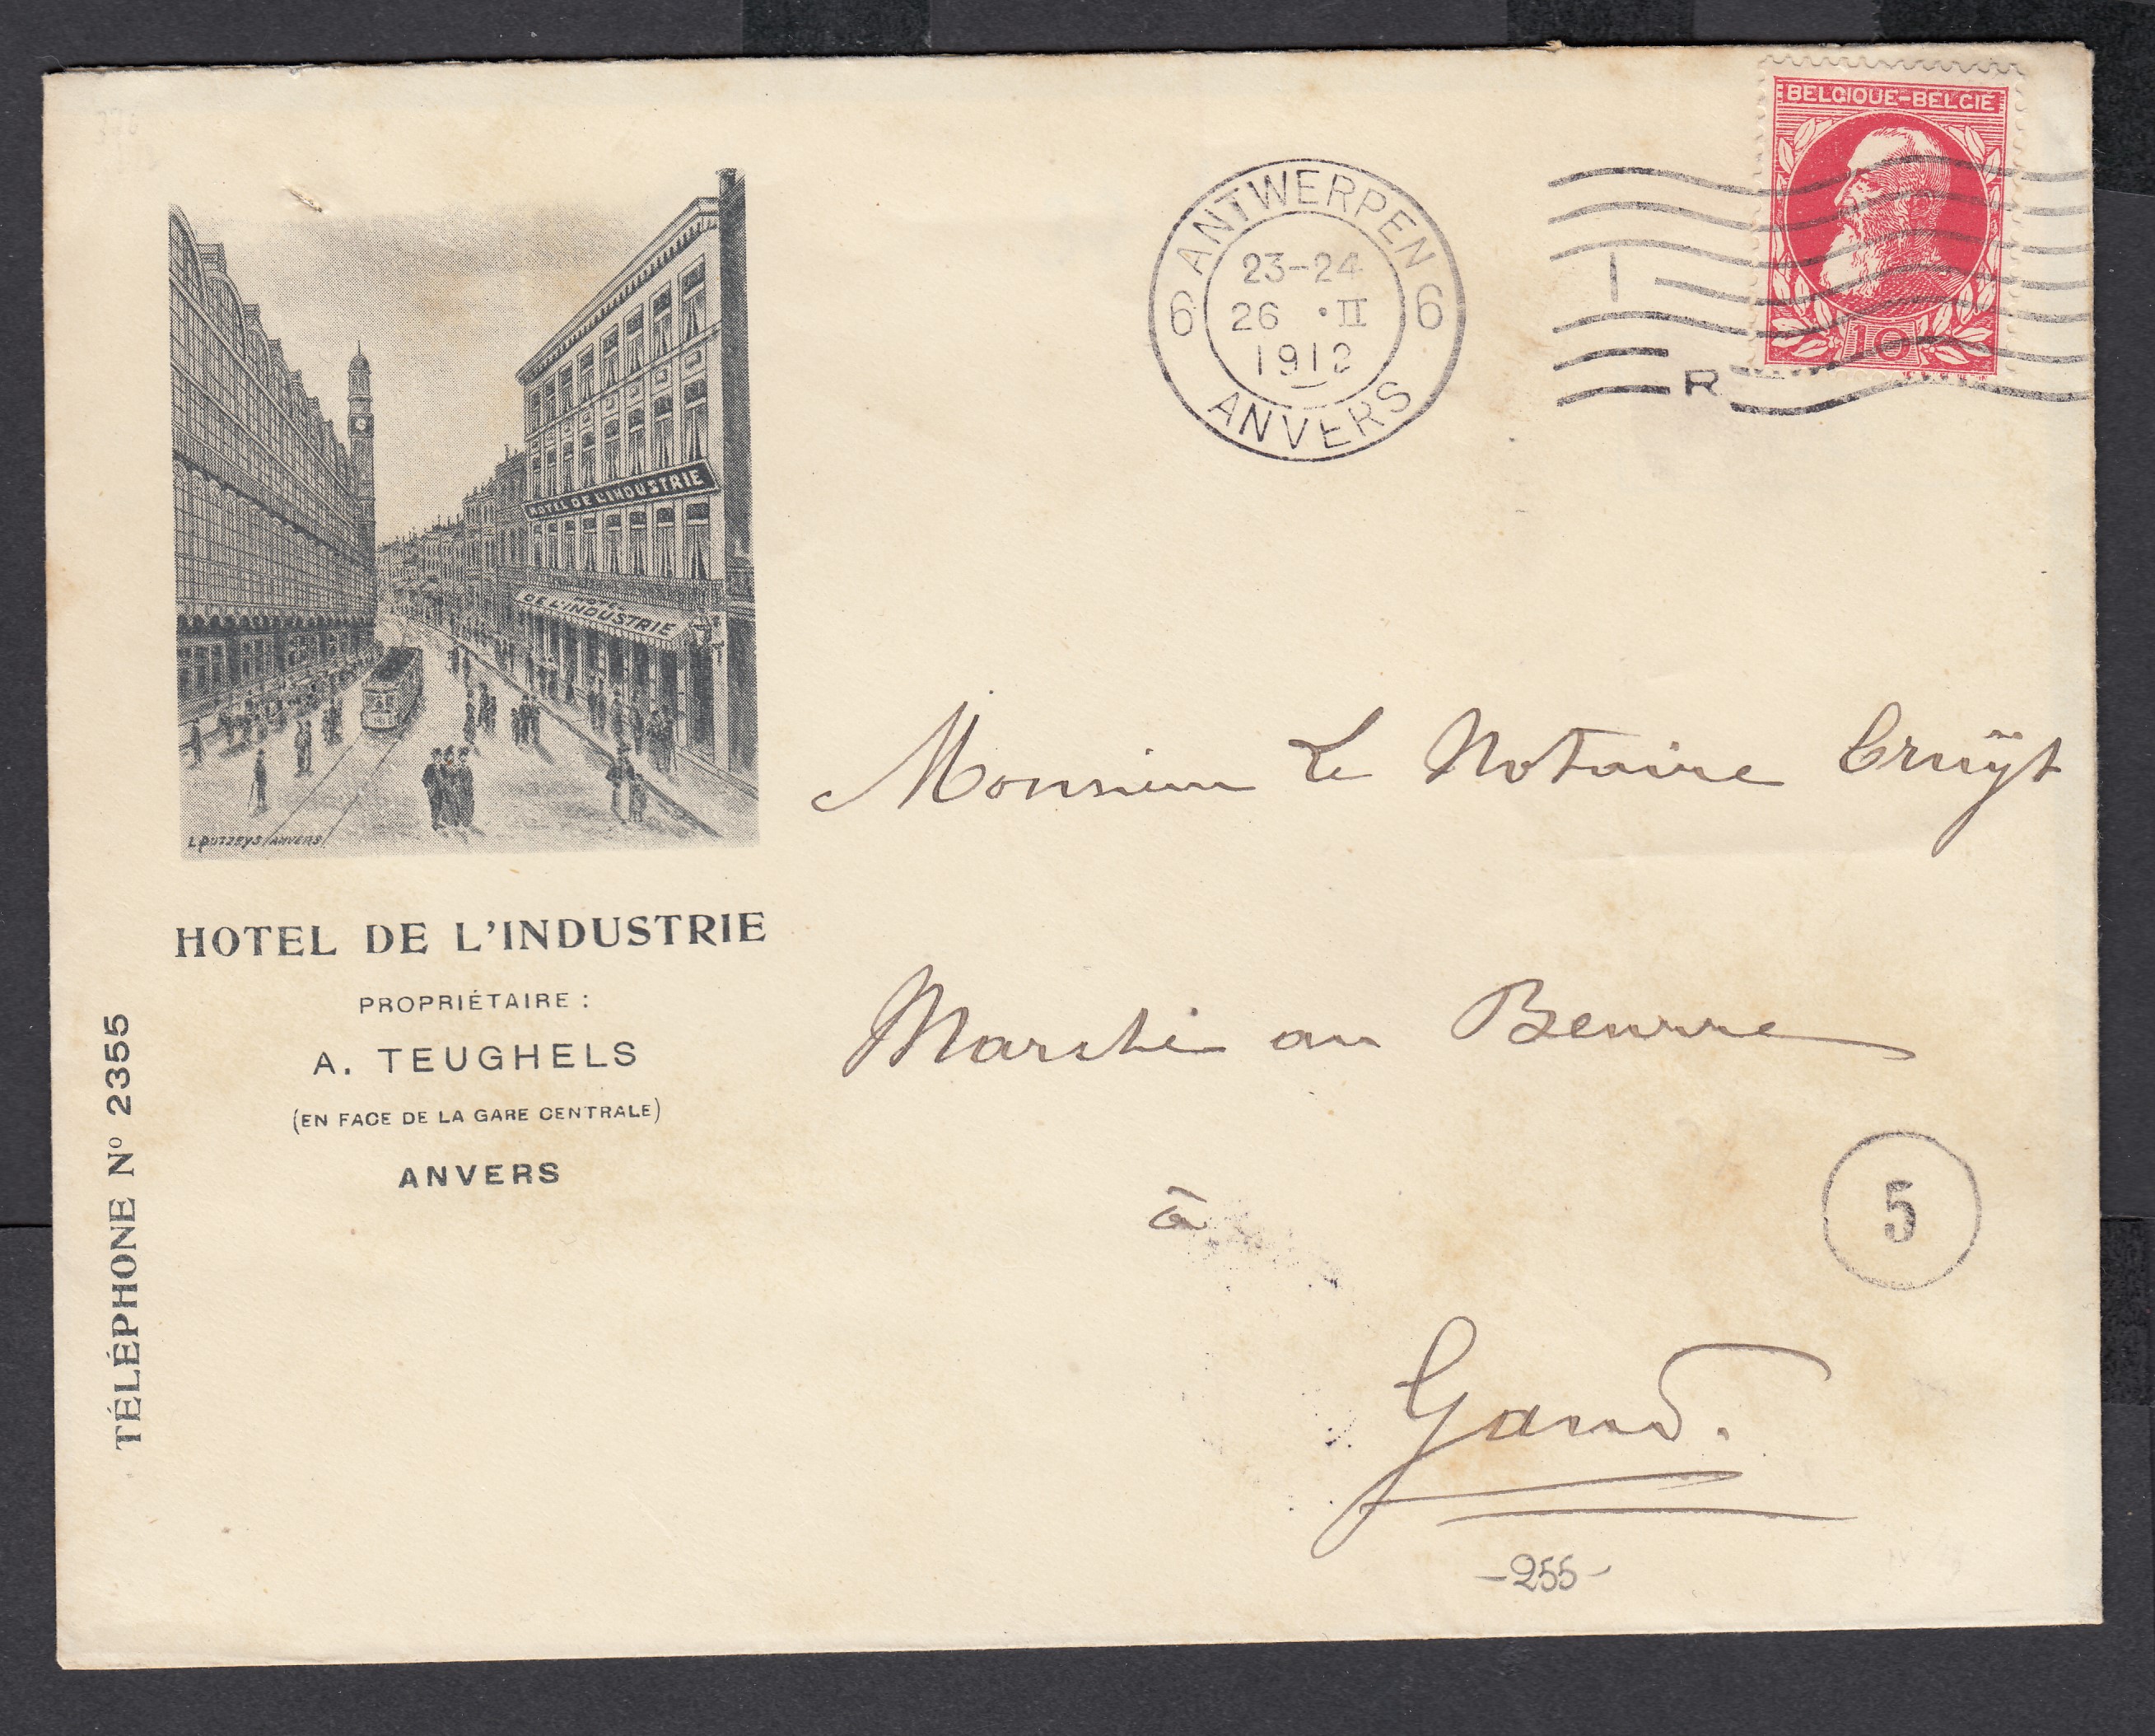 BELGIQUE-BELGIË
10
ANTWERPEN
6 6
23-24
26 • II
1912
ANVERS
I
R
HOTEL DE L'INDUSTRIE
HOTEL
DE L'INDUSTRIE
ANVERS
HOTEL DE L'INDUSTRIE
PROPRIÉTAIRE :
A. TEUGHELS
(EN FACE DE LA GARE CENTRALE)
ANVERS
TÉLÉPHONE Nº 2355
Monsieur Le Notaire Cruÿt
Marché au Beurre
à
Gand.
5
-255-